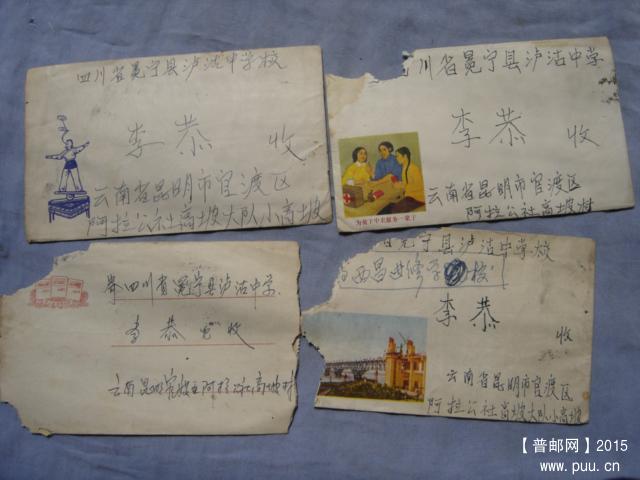 四川省冕宁县泸沽中学校
李恭 收
云南省昆明市官渡区
阿拉公社高坡大队小高坡
川省冕宁县泸沽中学
李恭 收
云南省昆明市官渡区
阿拉公社高坡村
四川省冕宁县泸沽中学
李恭 收
阿拉公社高坡村
冕宁县泸沽中学校
李恭
收
云南省昆明市官渡区
阿拉公社高坡大队小高坡
【普邮网】2015
www.puu.cn